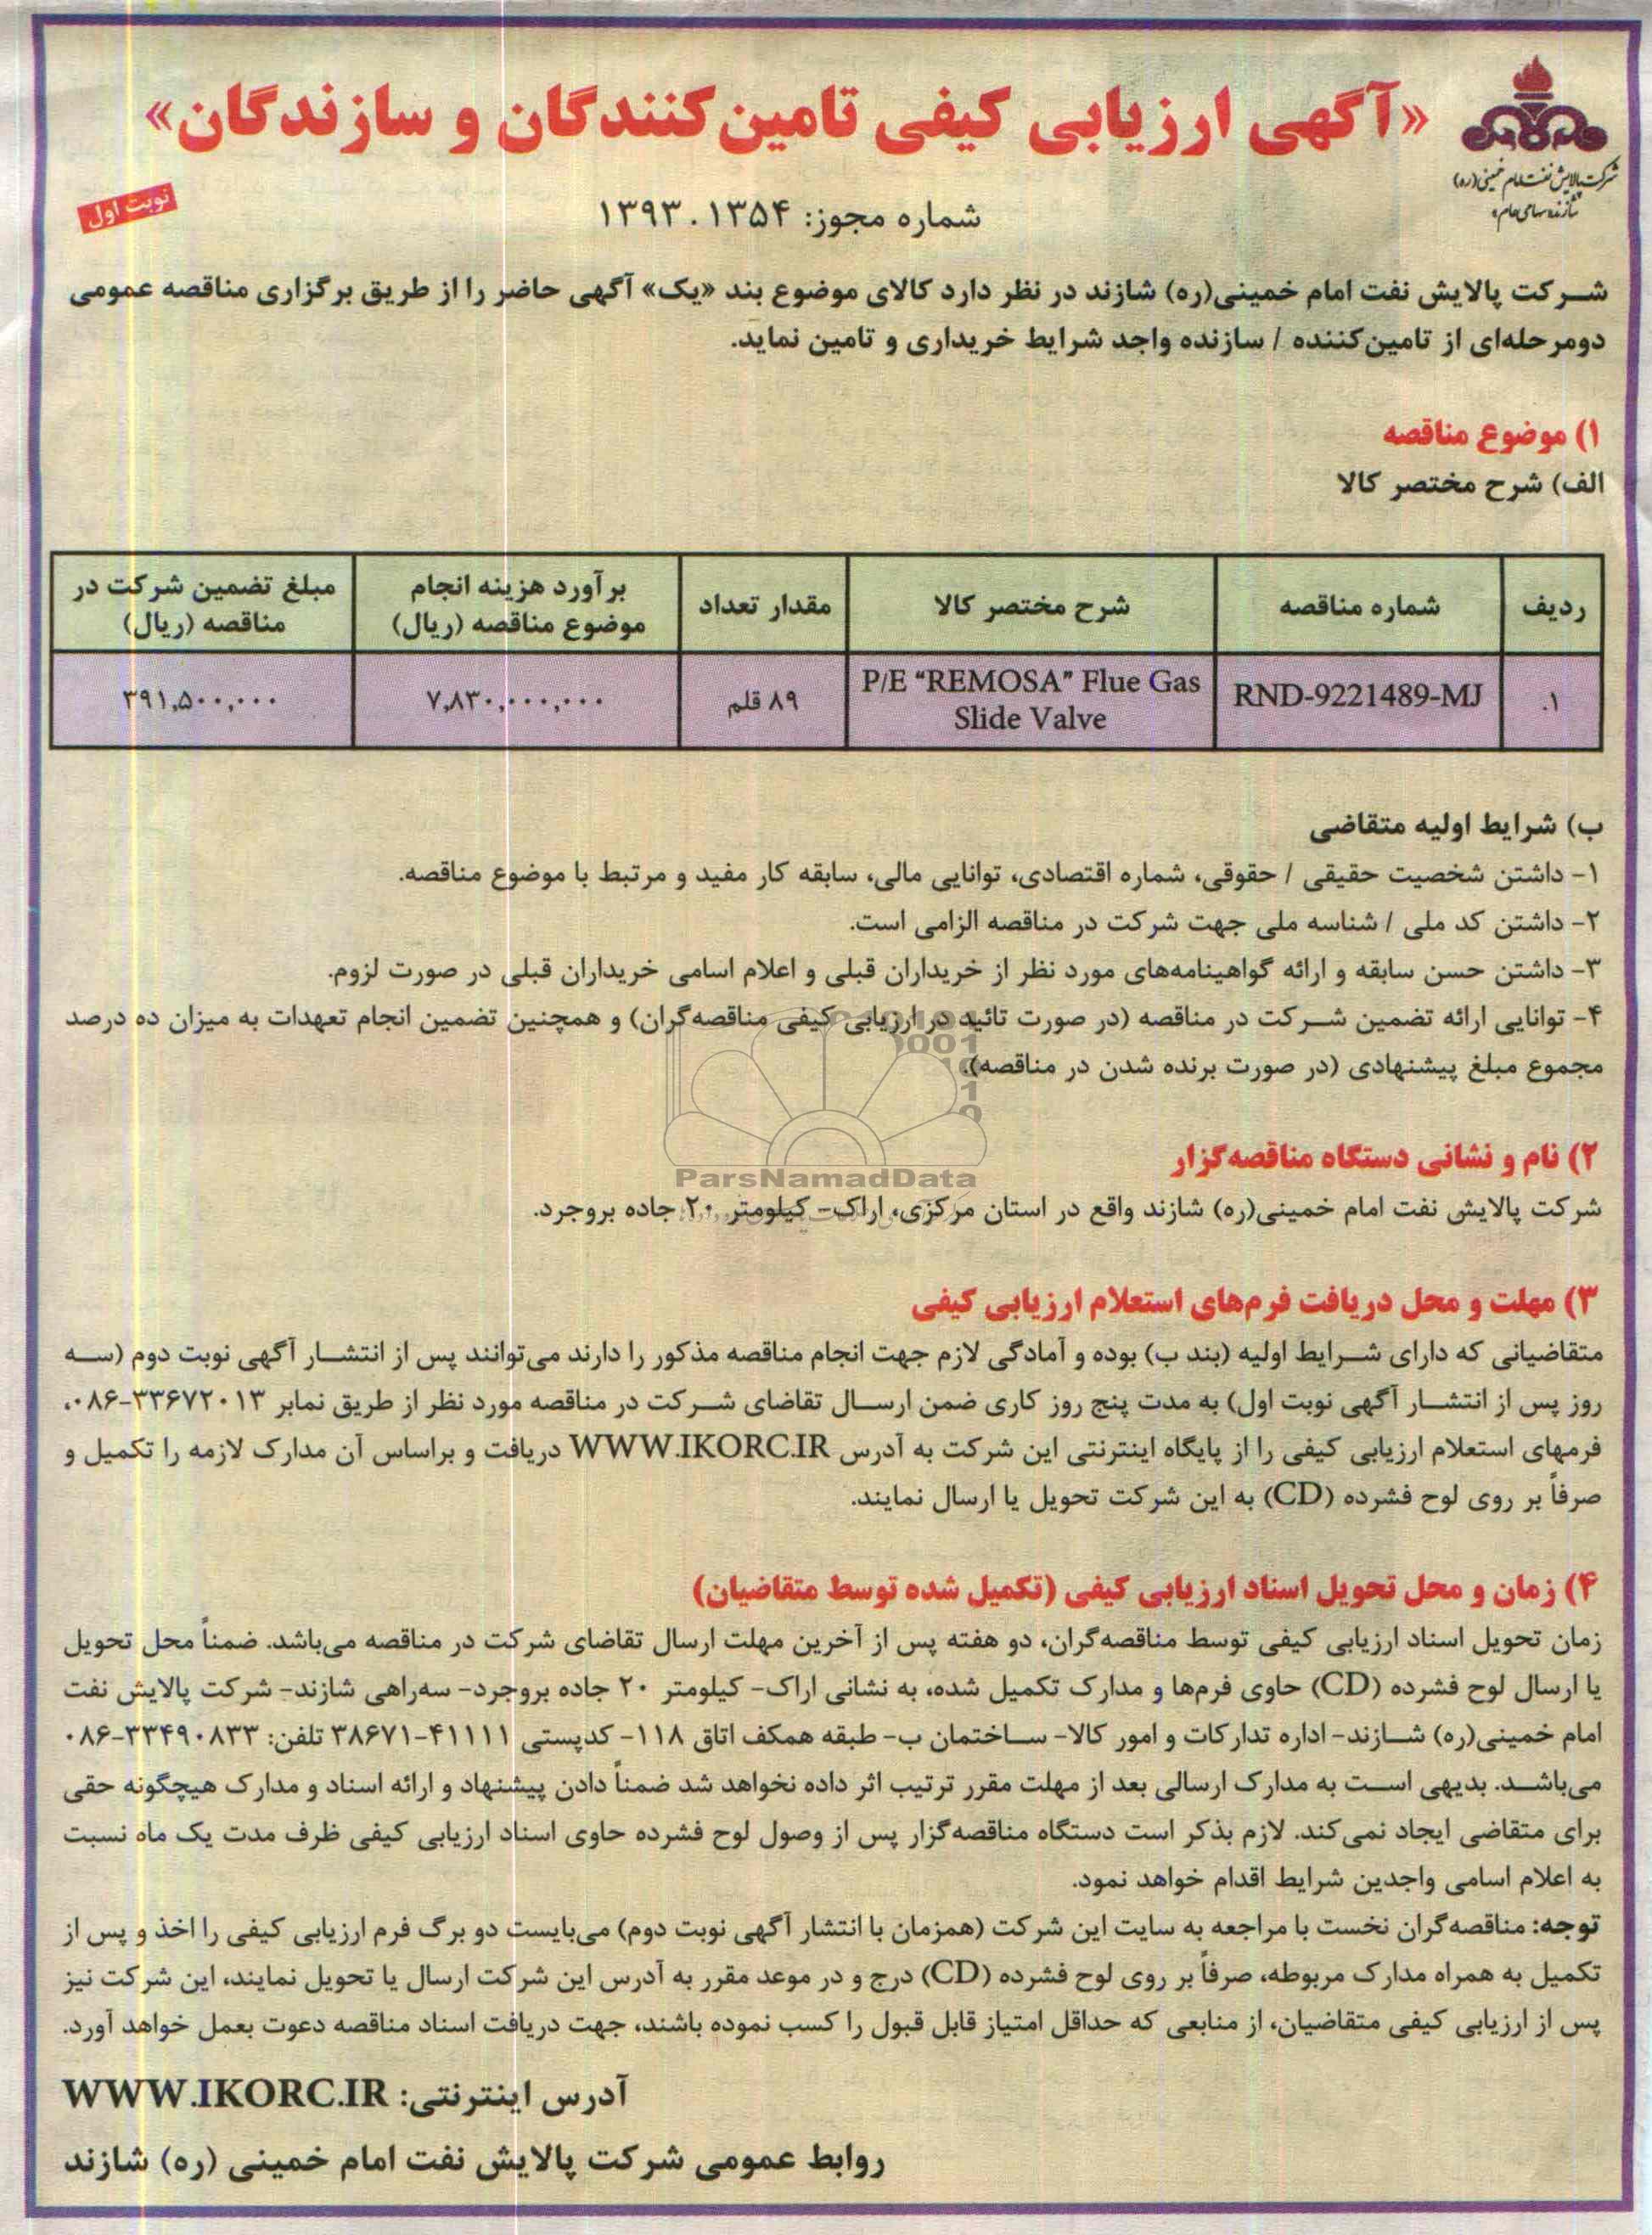 «آگهی ارزیابی کیفی تامین‌کنندگان و سازندگان»
شرکت پالایش نفت امام خمینی (ره)
شازند «سهامی عام»
نوبت اول
شماره مجوز: ۱۳۹۳.۱۳۵۴
شرکت پالایش نفت امام خمینی(ره) شازند در نظر دارد کالای موضوع بند «یک» آگهی حاضر را از طریق برگزاری مناقصه عمومی
دومرحله‌ای از تامین‌کننده / سازنده واجد شرایط خریداری و تامین نماید.
۱) موضوع مناقصه
الف) شرح مختصر کالا
ردیف | شماره مناقصه | شرح مختصر کالا | مقدار تعداد | برآورد هزینه انجام موضوع مناقصه (ریال) | مبلغ تضمین شرکت در مناقصه (ریال)
۱. | RND-9221489-MJ | P/E “REMOSA” Flue Gas Slide Valve | ۸۹ قلم | ۷,۸۳۰,۰۰۰,۰۰۰ | ۳۹۱,۵۰۰,۰۰۰
ب) شرایط اولیه متقاضی
۱- داشتن شخصیت حقیقی / حقوقی، شماره اقتصادی، توانایی مالی، سابقه کار مفید و مرتبط با موضوع مناقصه.
۲- داشتن کد ملی / شناسه ملی جهت شرکت در مناقصه الزامی است.
۳- داشتن حسن سابقه و ارائه گواهینامه‌های مورد نظر از خریداران قبلی و اعلام اسامی خریداران قبلی در صورت لزوم.
۴- توانایی ارائه تضمین شرکت در مناقصه (در صورت تائید در ارزیابی کیفی مناقصه‌گران) و همچنین تضمین انجام تعهدات به میزان ده درصد
مجموع مبلغ پیشنهادی (در صورت برنده شدن در مناقصه).
ParsNamadData
۲) نام و نشانی دستگاه مناقصه‌گزار
شرکت پالایش نفت امام خمینی(ره) شازند واقع در استان مرکزی، اراک- کیلومتر ۲۰ جاده بروجرد.
۳) مهلت و محل دریافت فرم‌های استعلام ارزیابی کیفی
متقاضیانی که دارای شرایط اولیه (بند ب) بوده و آمادگی لازم جهت انجام مناقصه مذکور را دارند می‌توانند پس از انتشار آگهی نوبت دوم (سه
روز پس از انتشار آگهی نوبت اول) به مدت پنج روز کاری ضمن ارسال تقاضای شرکت در مناقصه مورد نظر از طریق نمابر ۳۳۶۷۲۰۱۳-۰۸۶،
فرمهای استعلام ارزیابی کیفی را از پایگاه اینترنتی این شرکت به آدرس WWW.IKORC.IR دریافت و براساس آن مدارک لازمه را تکمیل و
صرفاً بر روی لوح فشرده (CD) به این شرکت تحویل یا ارسال نمایند.
۴) زمان و محل تحویل اسناد ارزیابی کیفی (تکمیل شده توسط متقاضیان)
زمان تحویل اسناد ارزیابی کیفی توسط مناقصه‌گران، دو هفته پس از آخرین مهلت ارسال تقاضای شرکت در مناقصه می‌باشد. ضمناً محل تحویل
یا ارسال لوح فشرده (CD) حاوی فرم‌ها و مدارک تکمیل شده، به نشانی اراک- کیلومتر ۲۰ جاده بروجرد- سه‌راهی شازند- شرکت پالایش نفت
امام خمینی(ره) شازند- اداره تدارکات و امور کالا- ساختمان ب- طبقه همکف اتاق ۱۱۸- کدپستی ۴۱۱۱۱-۳۸۶۷۱ تلفن: ۳۳۴۹۰۸۳۳-۰۸۶
می‌باشد. بدیهی است به مدارک ارسالی بعد از مهلت مقرر ترتیب اثر داده نخواهد شد ضمناً دادن پیشنهاد و ارائه اسناد و مدارک هیچگونه حقی
برای متقاضی ایجاد نمی‌کند. لازم بذکر است دستگاه مناقصه‌گزار پس از وصول لوح فشرده حاوی اسناد ارزیابی کیفی ظرف مدت یک ماه نسبت
به اعلام اسامی واجدین شرایط اقدام خواهد نمود.
توجه: مناقصه‌گران نخست با مراجعه به سایت این شرکت (همزمان با انتشار آگهی نوبت دوم) می‌بایست دو برگ فرم ارزیابی کیفی را اخذ و پس از
تکمیل به همراه مدارک مربوطه، صرفاً بر روی لوح فشرده (CD) درج و در موعد مقرر به آدرس این شرکت ارسال یا تحویل نمایند، این شرکت نیز
پس از ارزیابی کیفی متقاضیان، از منابعی که حداقل امتیاز قابل قبول را کسب نموده باشند، جهت دریافت اسناد مناقصه دعوت بعمل خواهد آورد.
آدرس اینترنتی: WWW.IKORC.IR
روابط عمومی شرکت پالایش نفت امام خمینی (ره) شازند